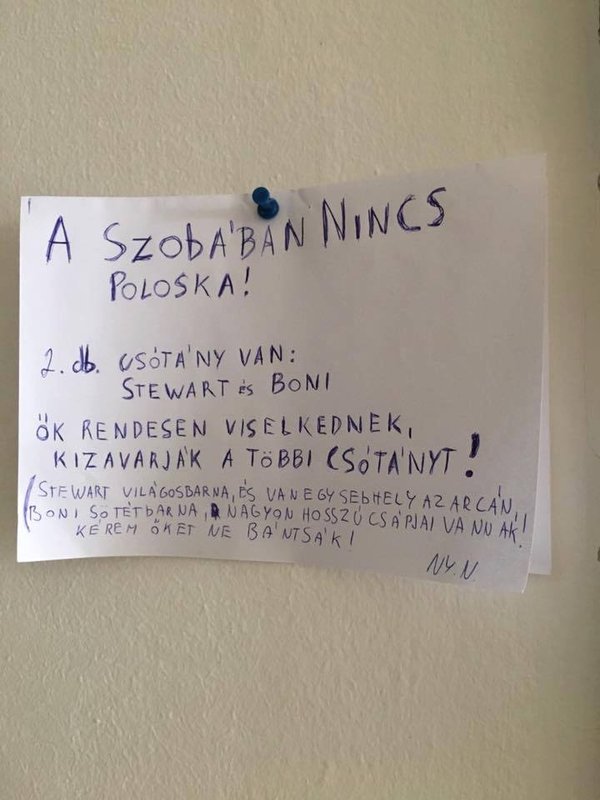 A SZOBÁBAN NINCS
POLOSKA!
2. db. CSÓTÁNY VAN:
STEWART ÉS BONI
ŐK RENDESEN VISELKEDNEK,
KIZAVARJÁK A TÖBBI CSÓTÁNYT!
(STEWART VILÁGOSBARNA, ÉS VAN EGY SEBHELY AZ ARCÁN,
BONI SÖTÉTBARNA, NAGYON HOSSZÚ CSÁPJAI VANNAK!
KÉREM ŐKET NE BÁNTSÁK!
NY.N